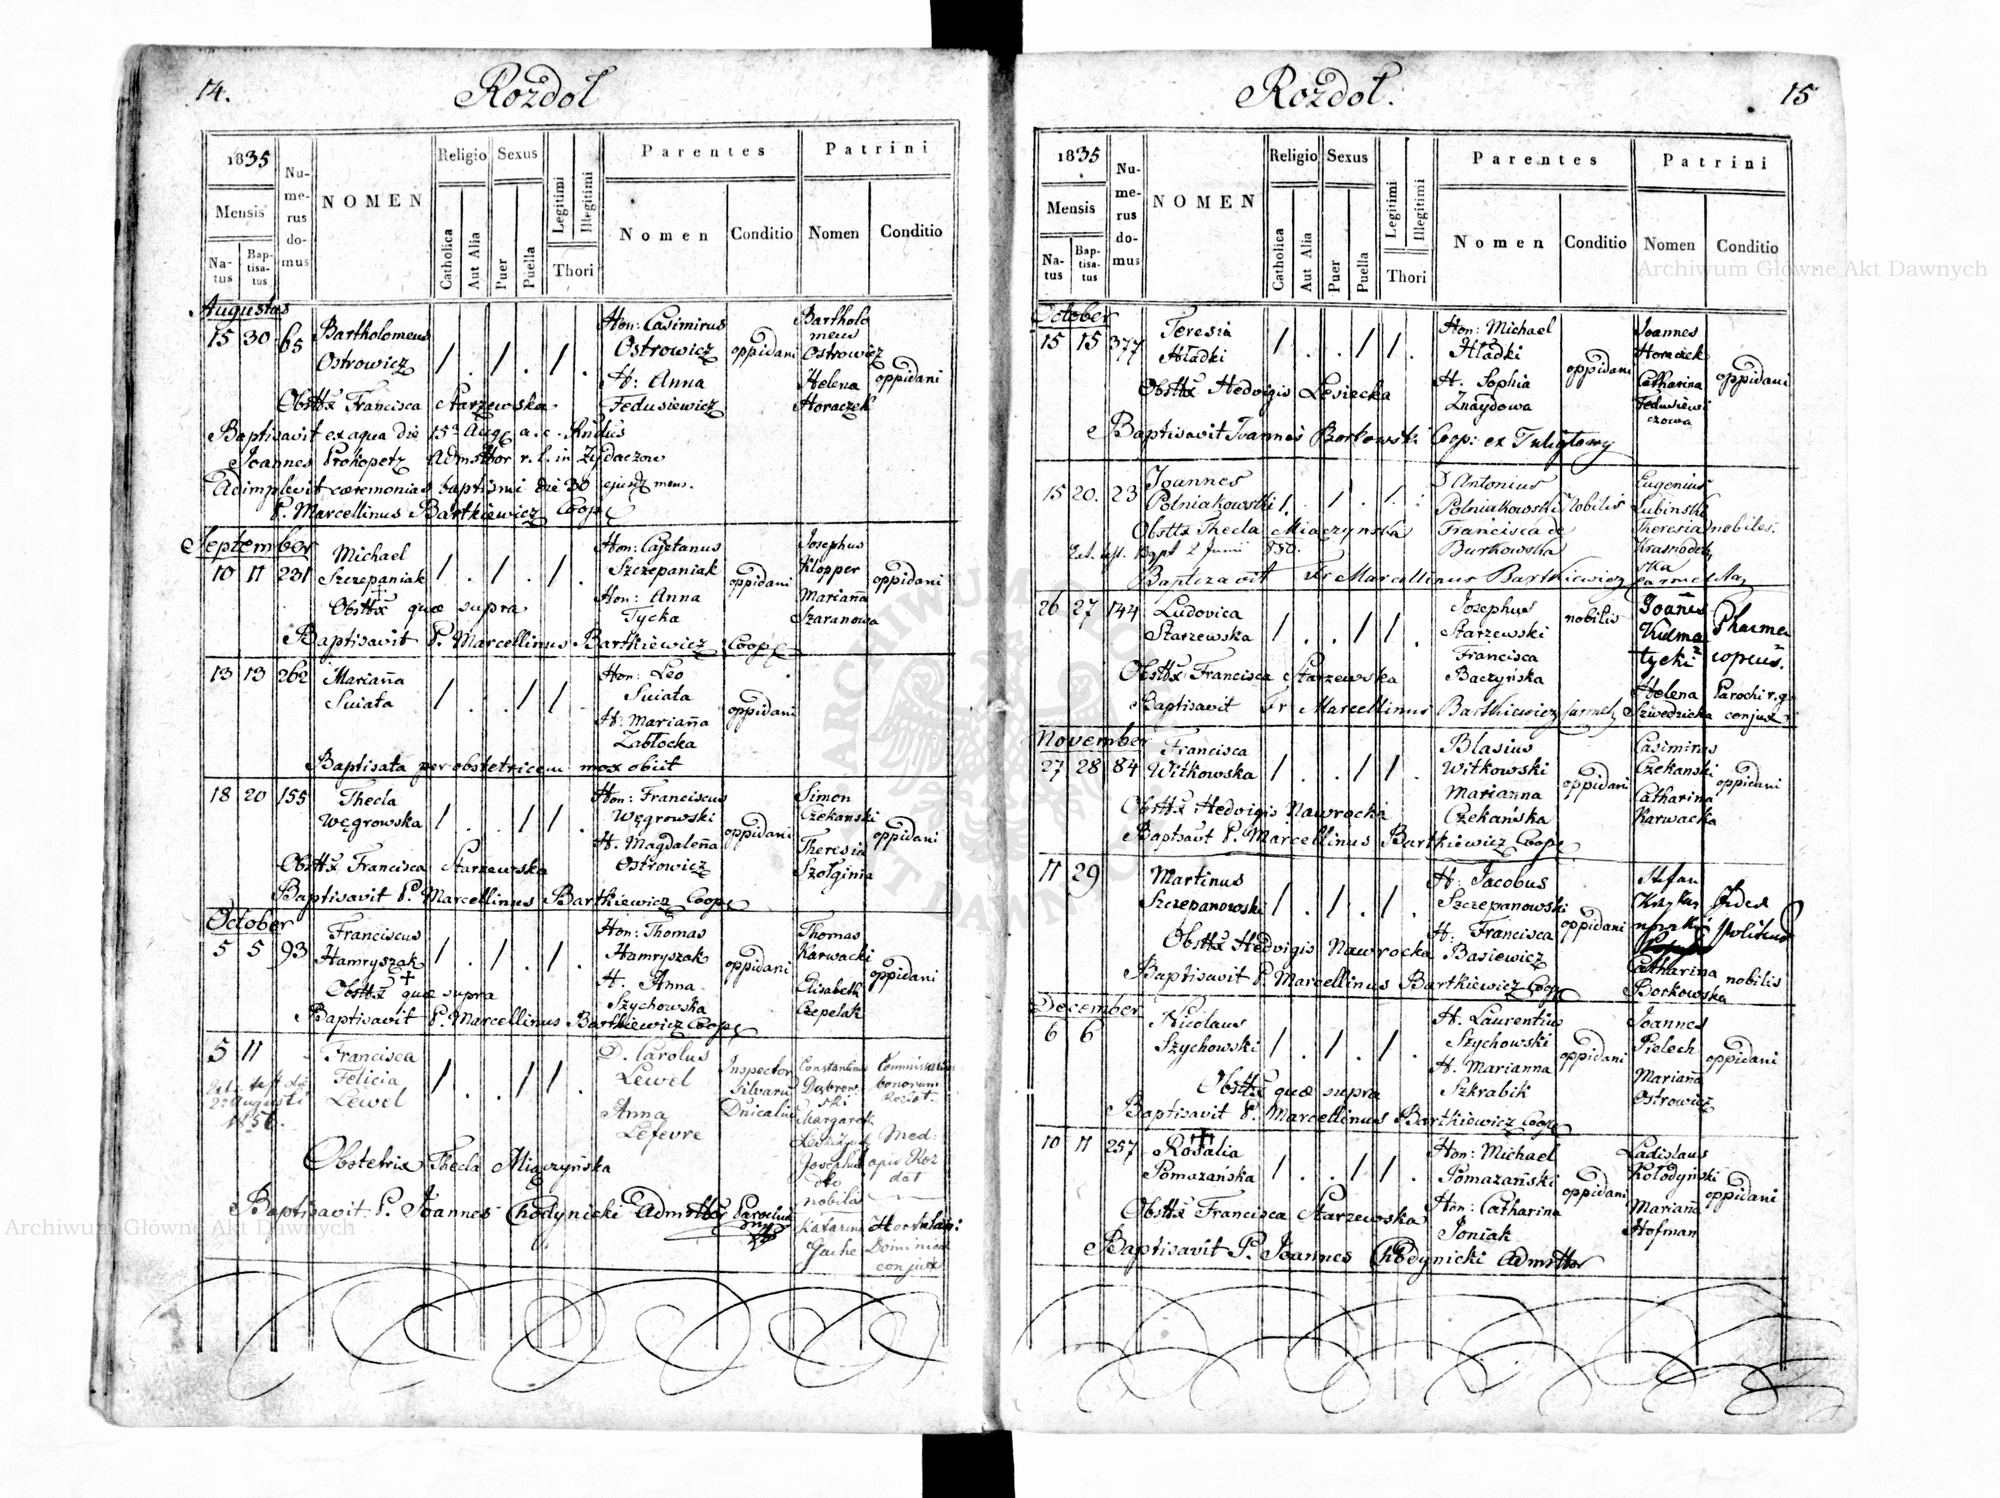 14.
Rozdoł
1835
Mensis
Na-
tus
Bap-
tisa-
tus
Nu-
me-
rus
do-
mus
NOMEN
Religio
Catholica
Aut Alia
Sexus
Puer
Puella
Legitimi
Illegitimi
Thori
Parentes
Nomen
Conditio
Patrini
Nomen
Conditio
Augustus
15 30 65 Bartholomeus
Ostrowicz
Hon: Casimirus
Ostrowicz
H: Anna
Fedusiewicz
oppidani
Bartholo
meus
Ostrowicz
Helena
Horaczek
oppidani
Francisca Starzewska
Baptisavit ex aqua die 15 a. c.
Joannes Prokopetz r. l. in Zydaczow
Adimplevit caeremonias baptismi die 30 mens.
P. Marcellinus Bartkiewicz Coop
September
10 11 231 Michael
Szczepaniak
Hon: Cajetanus
Szczepaniak
Hon: Anna
Tycka
oppidani
Josephus
Klopper
Mariana
Szaranowa
oppidani
quae supra
Baptisavit P. Marcellinus Bartkiewicz Coop
13 13 262 Mariana
Suiata
Hon: Leo
Suiata
H: Mariana
Zabłocka
oppidani
Baptisata per obstetricem mox obiit
18 20 155 Thecla
Węgrowska
Hon: Franciscus
Węgrowski
H. Magdalena
Ostrowicz
oppidani
Simon
Czekanski
Theresia
Szołginia
oppidani
Francisca Starzewska
Baptisavit P. Marcellinus Bartkiewicz Coop
October
5 5 93 Franciscus
Hamryszak
Hon: Thomas
Hamryszak
H. Anna
Szychowska
oppidani
Thomas
Karwacki
Elisabeth
Czepelak
oppidani
quae supra
Baptisavit P. Marcellinus Bartkiewicz Coop
5 11 Francisca
Felicia
Lewel
D. Carolus
Lewel
Anna
Lefevre
Inspector
Silvaru
Dnicaliu
Constantinus
Dąbrow
ski
Margareth
Josephus
nobilis
Katarina
Gache
Commissarius
bonorum
Rozdoł.
Med:
Roz
doł
Dominical
conjux
Augusti
1856.
Obstetrix Thecla Miączyńska
Baptisavit P. Joannes Chodynicki
15
Rozdoł.
1835
Mensis
Na-
tus
Bap-
tisa-
tus
Nu-
me-
rus
do-
mus
NOMEN
Religio
Catholica
Aut Alia
Sexus
Puer
Puella
Legitimi
Illegitimi
Thori
Parentes
Nomen
Conditio
Patrini
Nomen
Conditio
October
15 15 377 Teresia
Hładki
Hon: Michael
Hładki
H. Sophia
Znaydowa
oppidani
Joannes
Horaczek
Catharina
Fedusiewi
czowa
oppidani
Hedvigis Lesiecka
Baptisavit Joannes Borkowski Coop: ex Tuligłowy
15 20. 23 Joannes
Polniakowski
D Antonius
Polniakowski
Francisca de
Burkowska
nobilis
Eugenius
Lubinski
Theresia
Krasnodęb
ska
nobiles.
Thecla Miączynska
2 Junii 850.
Baptizavit Fr Marcellinus Bartkiewicz
26 27 144 Ludovica
Starzewska
Josephus
Starzewski
Francisca
Baczyńska
nobilis
Joanes
Kulma
tycki
Helena
Szwedzicka
Pharma
copeus.
Parochi r. g.
conjux
Francisca Starzewska
Baptisavit Fr Marcellinus Bartkiewicz
November
27 28 84 Francisca
Witkowska
Blasius
Witkowski
Marianna
Czekańska
oppidani
Casimirus
Czekanski
Catharina
Karwacka
oppidani
Hedvigis Nawrocka
P. Marcellinus Bartkiewicz Coop
11 29 Martinus
Szczepanowski
H. Jacobus
Szczepanowski
H. Francisca
Basiewicz
oppidani
Stefan
Catharina
Borkowska
nobilis
Hedvigis Nawrocka
Baptisavit P. Marcellinus Bartkiewicz Coop
December
6 6 Nicolaus
Szychowski
H. Laurentius
Szychowski
H. Marianna
Szkrabik
oppidani
Joannes
Pielech
Mariana
Ostrowicz
oppidani
quae supra
Baptisavit P. Marcellinus Bartkiewicz Coop
10 11 257 Rosalia
Pomazańska
Hon: Michael
Pomazański
Hon: Catharina
Joniak
oppidani
Ladislaus
Kołodyński
Mariana
Hofman
oppidani
Francisca Starzewska
Baptisavit P. Joannes Chodynicki
Archiwum Główne Akt Dawnych
Archiwum Główne Akt Dawnych